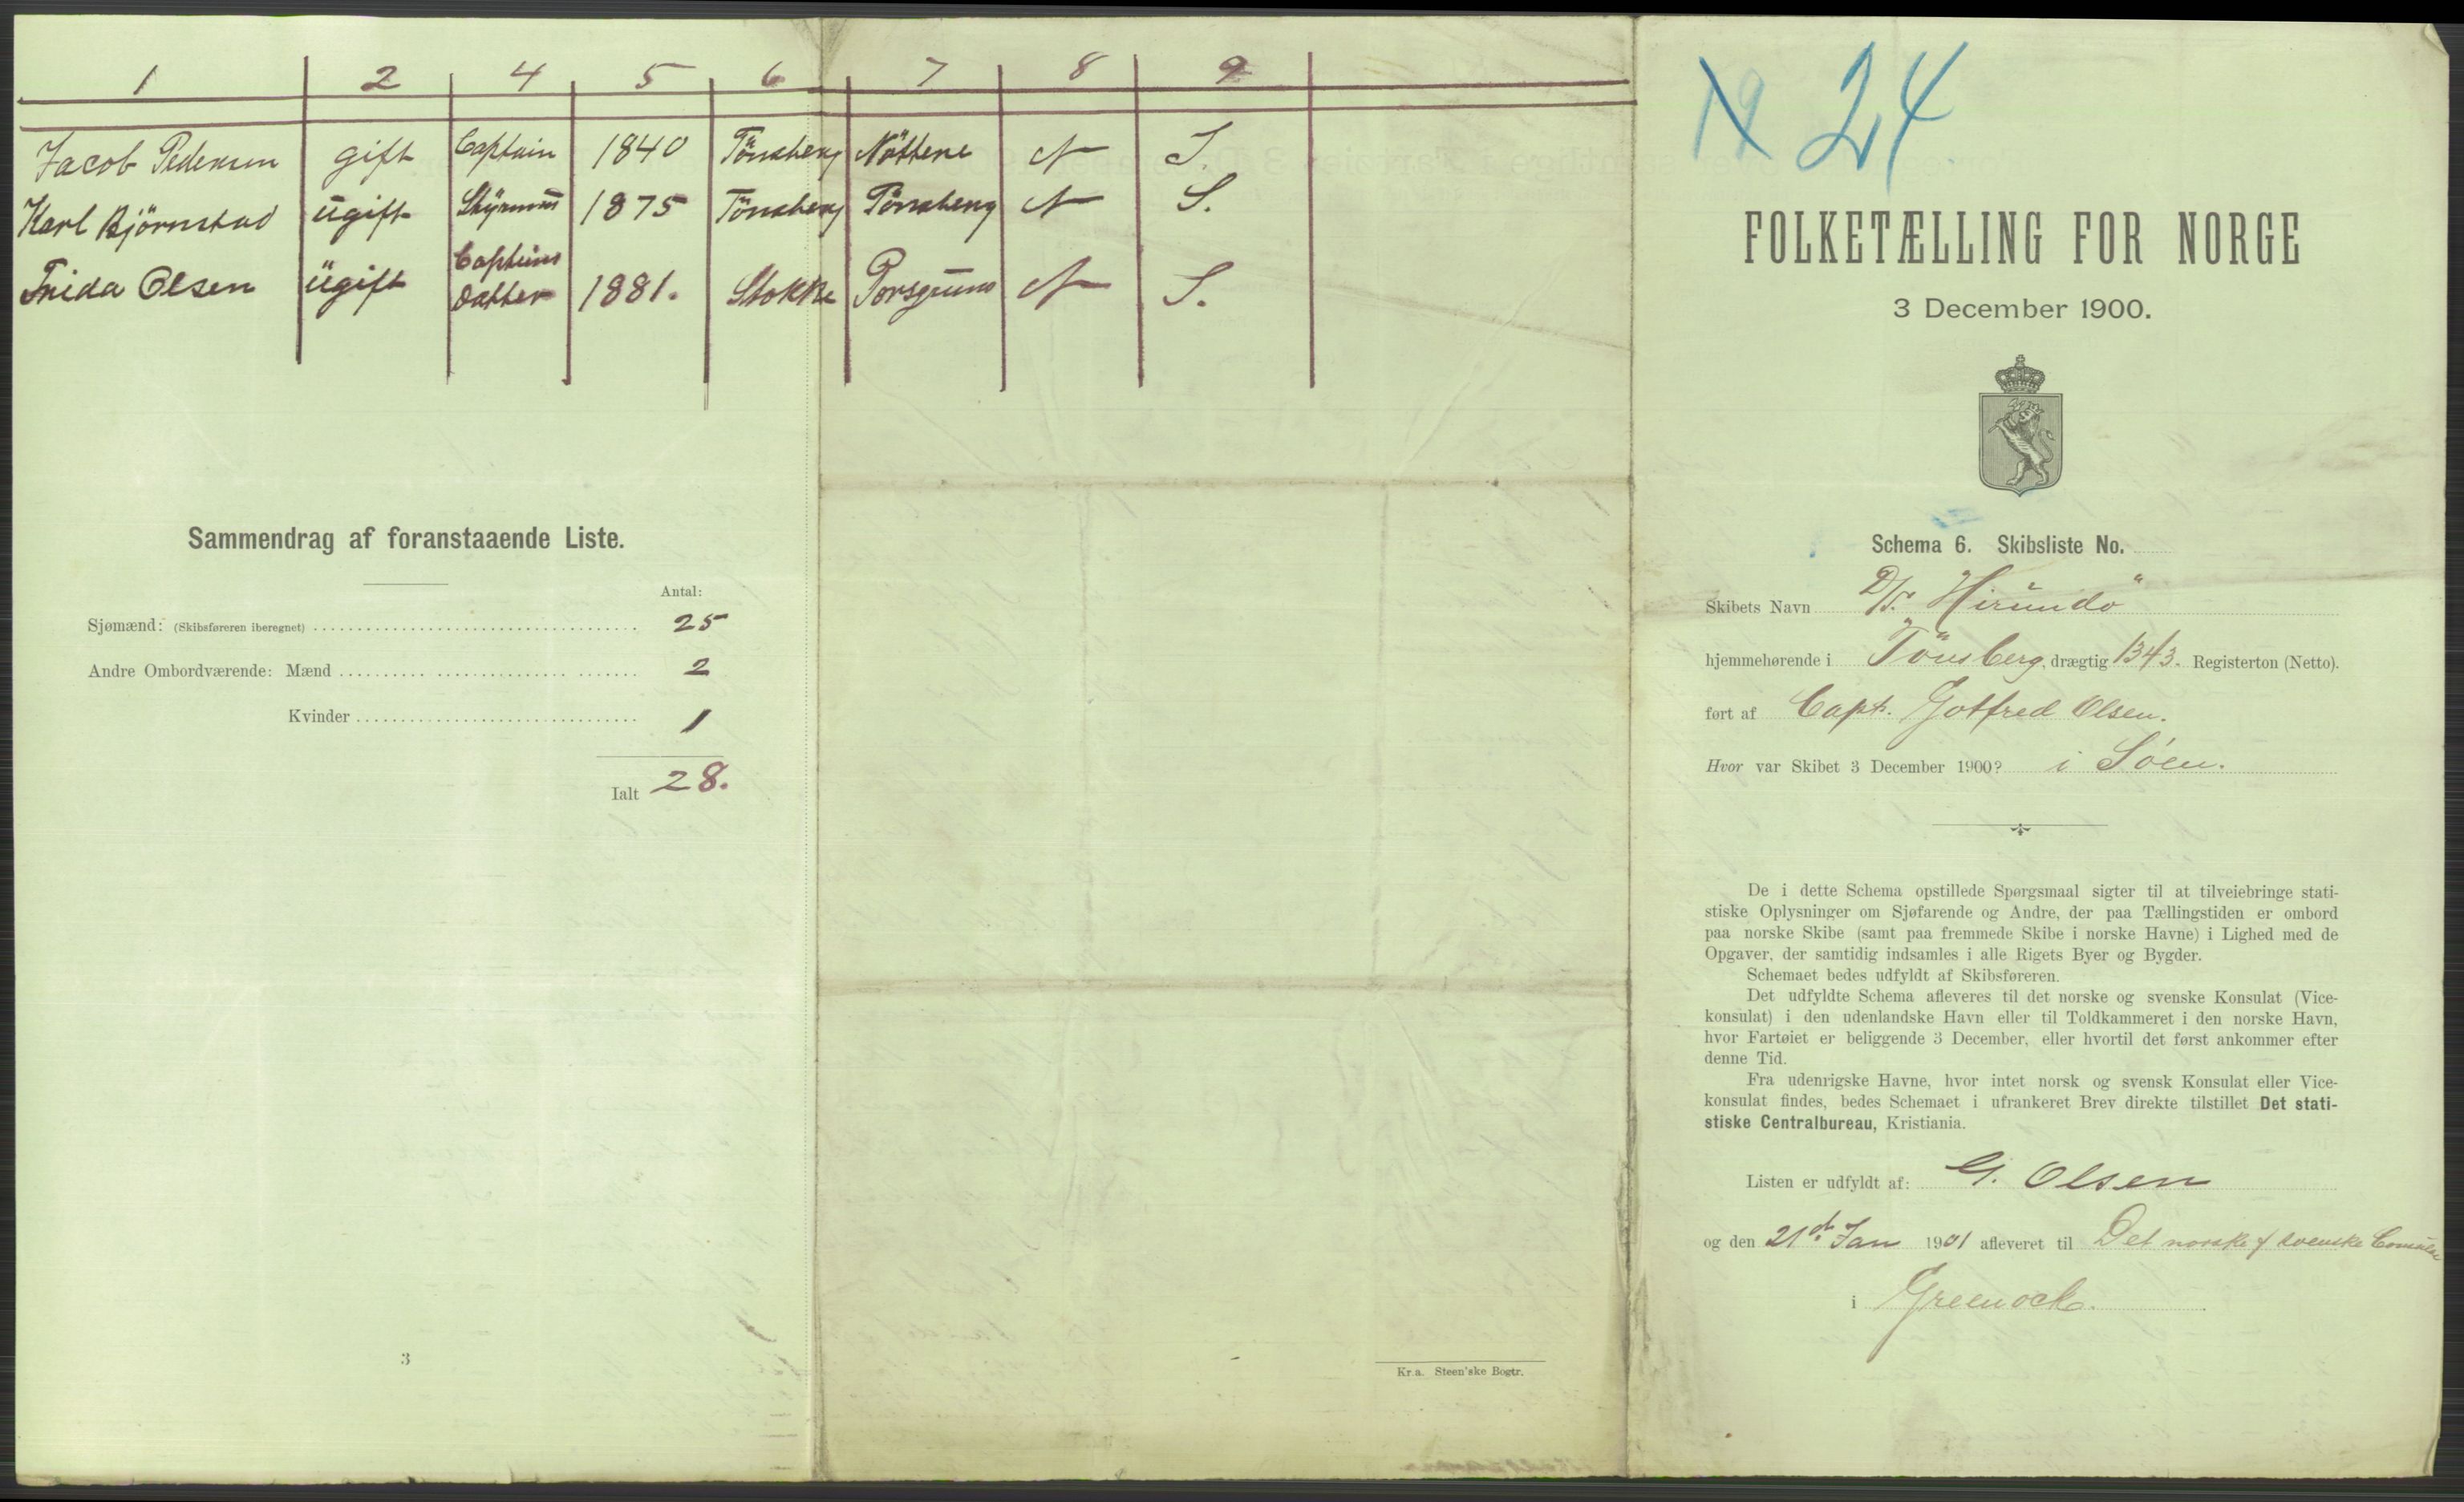 1 2 4 5 6 7 8 9
Jacob Pedersen gift Captain 1840 Tönsberg Nötterø N S.
Karl Björnstad ugift Styrmand 1875 Tönsberg Tönsberg N S.
Capteins
Frida Olsen ugift datter 1881. Stokke Porsgrund N S.
Sammendrag af foranstaaende Liste.
Antal:
Sjømænd: (Skibsføreren iberegnet) 25
Andre Ombordværende: Mænd 2
Kvinder 1
Ialt 28.
3
Kr.a. Steen'ske Bogtr.
24
FOLKETÆLLING FOR NORGE
3 December 1900.
Schema 6. Skibsliste No.
Skibets Navn D/S. "Hirundo"
hjemmehørende i Tönsberg, drægtig 1343. Registerton (Netto).
ført af Capt. Gotfred Olsen.
Hvor var Skibet 3 December 1900? i Söen.
De i dette Schema opstillede Spørgsmaal sigter til at tilveiebringe stati-
stiske Oplysninger om Sjøfarende og Andre, der paa Tællingstiden er ombord
paa norske Skibe (samt paa fremmede Skibe i norske Havne) i Lighed med de
Opgaver, der samtidig indsamles i alle Rigets Byer og Bygder.
Schemaet bedes udfyldt af Skibsføreren.
Det udfyldte Schema afleveres til det norske og svenske Konsulat (Vice-
konsulat) i den udenlandske Havn eller til Toldkammeret i den norske Havn,
hvor Fartøiet er beliggende 3 December, eller hvortil det først ankommer efter
denne Tid.
Fra udenrigske Havne, hvor intet norsk og svensk Konsulat eller Vice-
konsulat findes, bedes Schemaet i ufrankeret Brev direkte tilstillet Det stati-
stiske Centralbureau, Kristiania.
Listen er udfyldt af: G. Olsen
og den 21de Jan 1901 afleveret til Det norske & svenske
i Greenock.